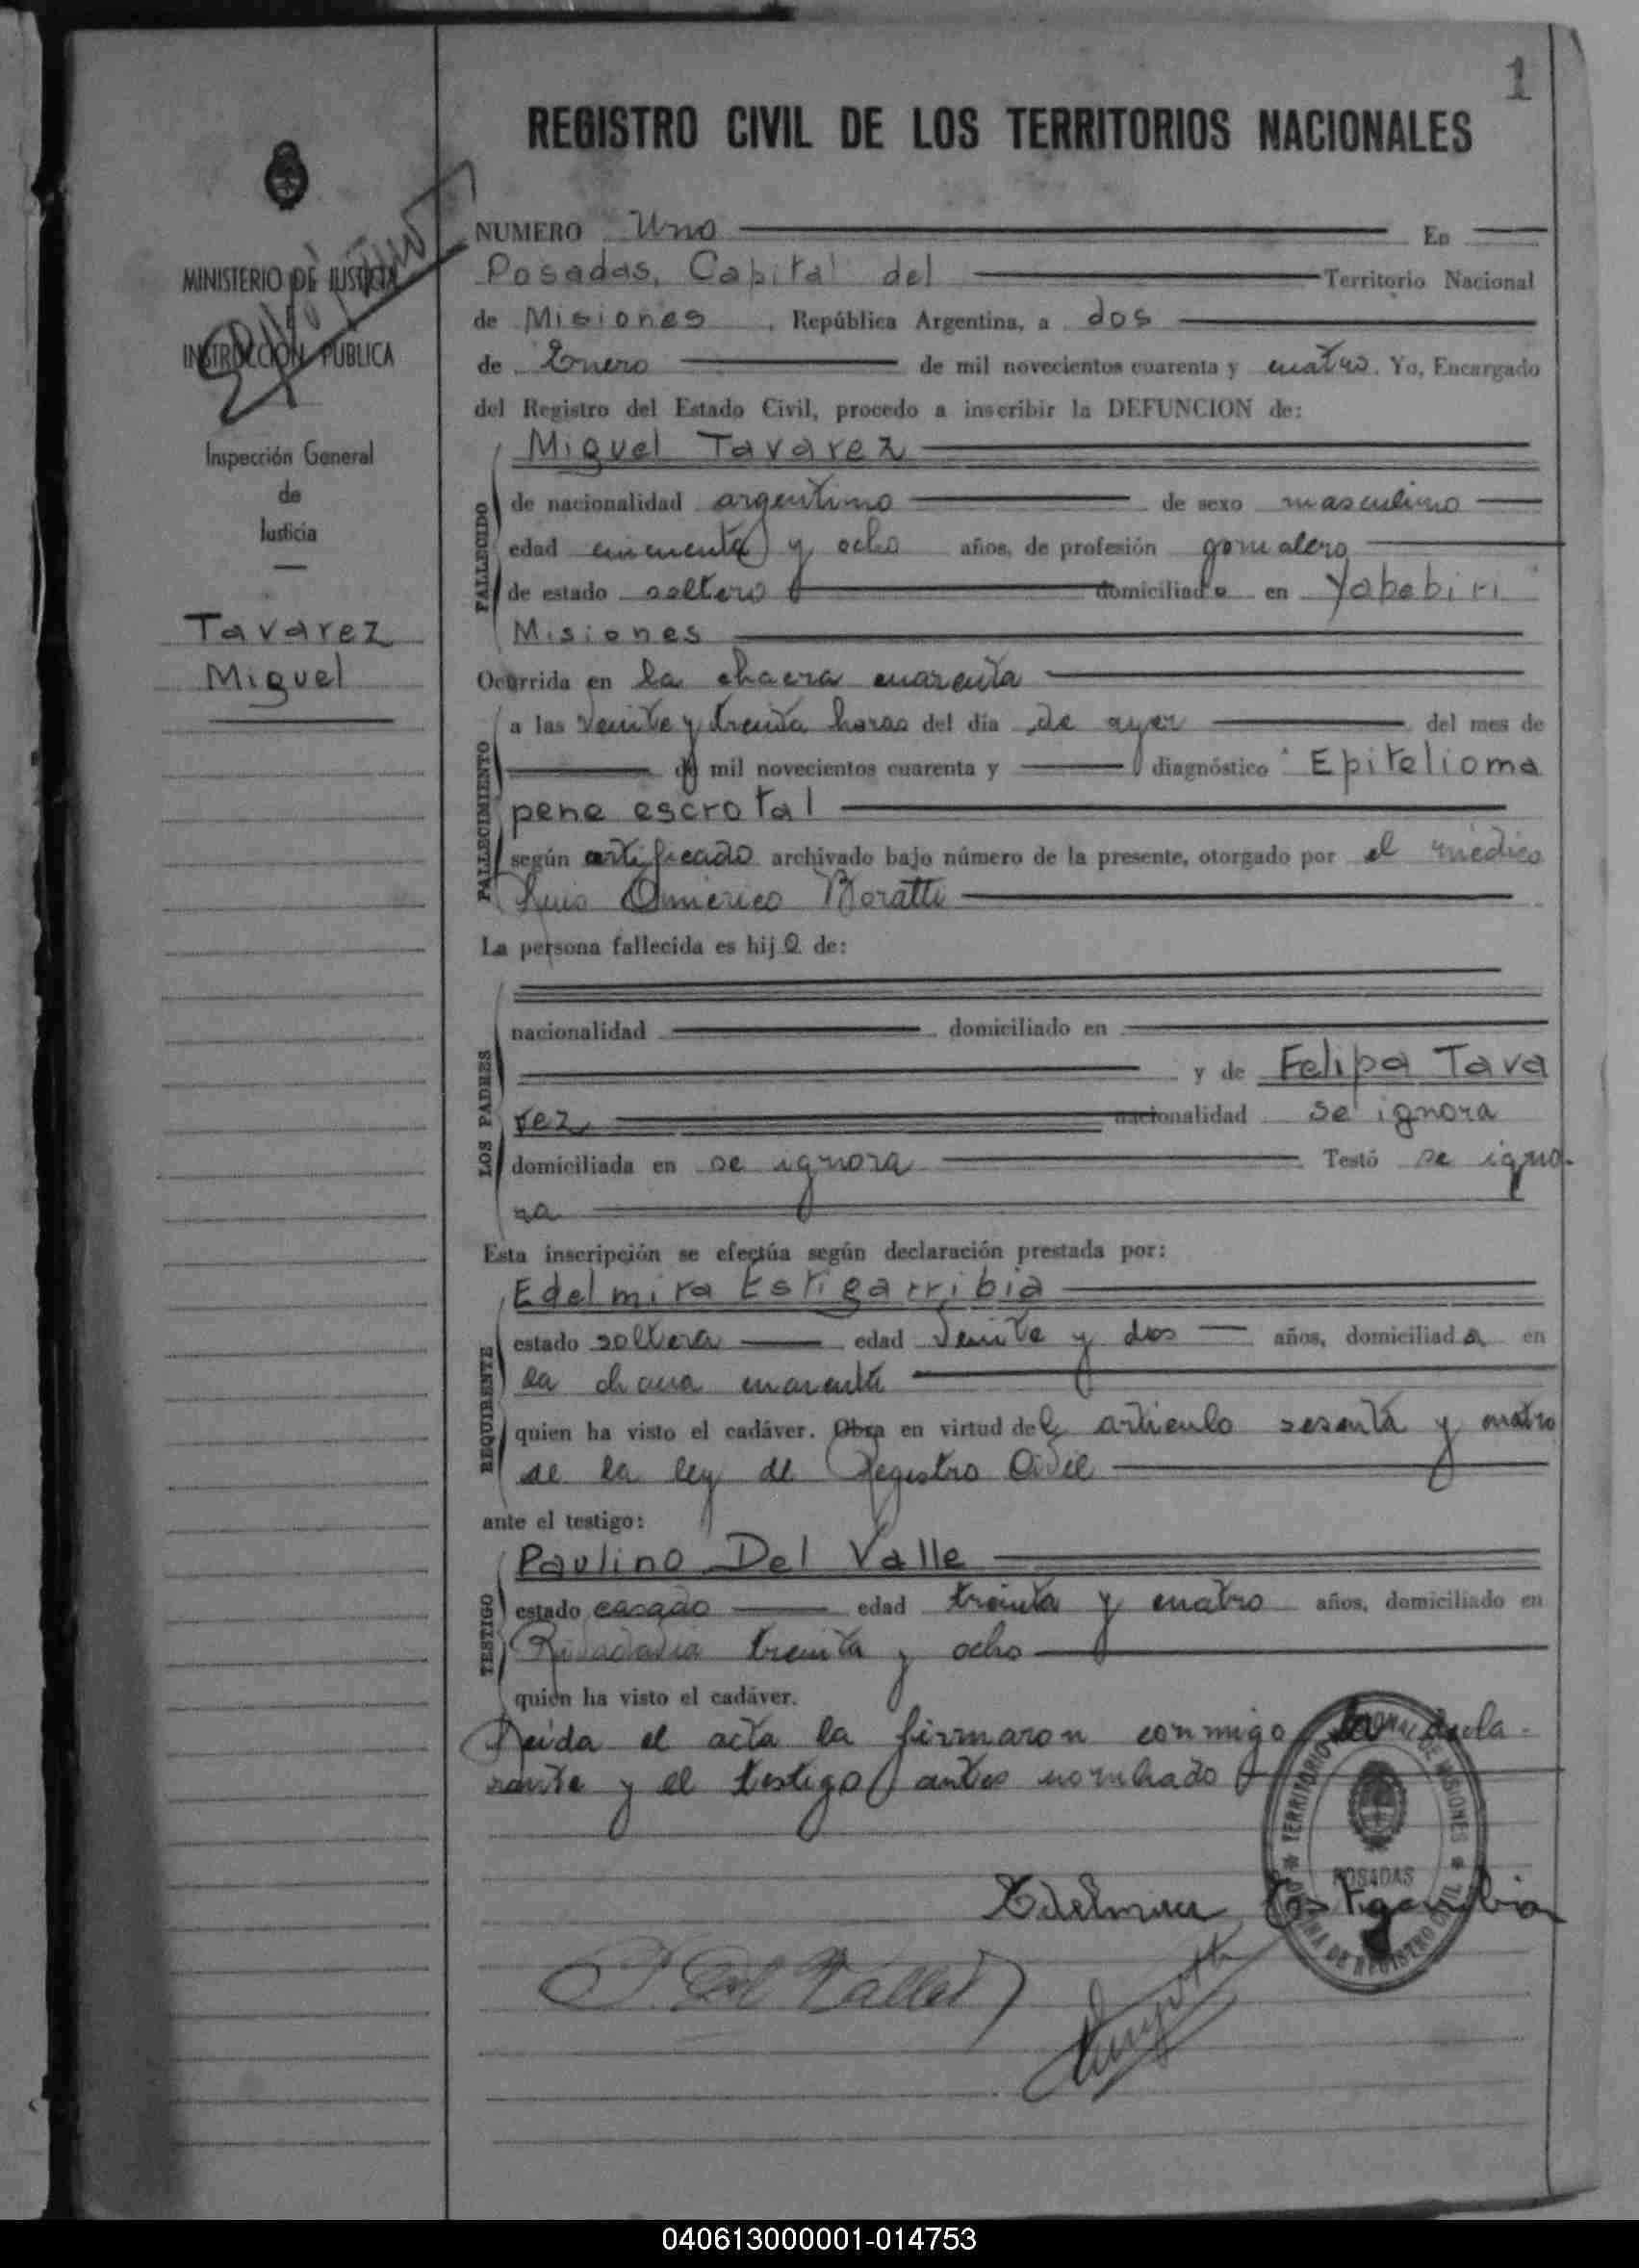 1
REGISTRO CIVIL DE LOS TERRITORIOS NACIONALES
MINISTERIO DE JUSTICIA
INSTRUCCION PUBLICA
Inspección General
de
Justicia
Tavarez
Miguel
NUMERO Uno En
Posadas, Capital del Territorio Nacional
de Misiones, República Argentina, a dos
de Enero de mil novecientos cuarenta y cuatro. Yo, Encargado
del Registro del Estado Civil, procedo a inscribir la DEFUNCION de:
FALLECIDO
Miguel Tavarez
de nacionalidad argentino de sexo masculino
edad cincuenta y ocho años, de profesión jornalero
de estado soltero domiciliado en Yabebiri
Misiones
Ocurrida en la chacra cuarenta
FALLECIMIENTO
a las veinte y treinta horas del día de ayer del mes de
de mil novecientos cuarenta y diagnóstico Epitelioma
pene escrotal
según certificado archivado bajo número de la presente, otorgado por el médico
Luis Americo Boratti
La persona fallecida es hijo de:
LOS PADRES
nacionalidad domiciliado en
y de Felipa Tava
rez nacionalidad se ignora
domiciliada en se ignora Testó se igno-
ra
Esta inscripción se efectúa según declaración prestada por:
REQUIRENTE
Edelmira Estigarribia
estado soltera edad veinte y dos años, domiciliada en
la chacra cuarenta
quien ha visto el cadáver. Obra en virtud del artículo sesenta y cuatro
de la ley de Registro Civil
ante el testigo:
TESTIGO
Paulino Del Valle
estado casado edad treinta y cuatro años, domiciliado en
Rivadavia treinta y ocho
quien ha visto el cadáver.
Leída el acta la firmaron conmigo la decla-
rante y el testigo antes nombrado
TERRITORIO NACIONAL DE MISIONES
POSADAS
OFICINA DE REGISTRO CIVIL
Edelmira Estigarribia
P. Del Valle
040613000001-014753